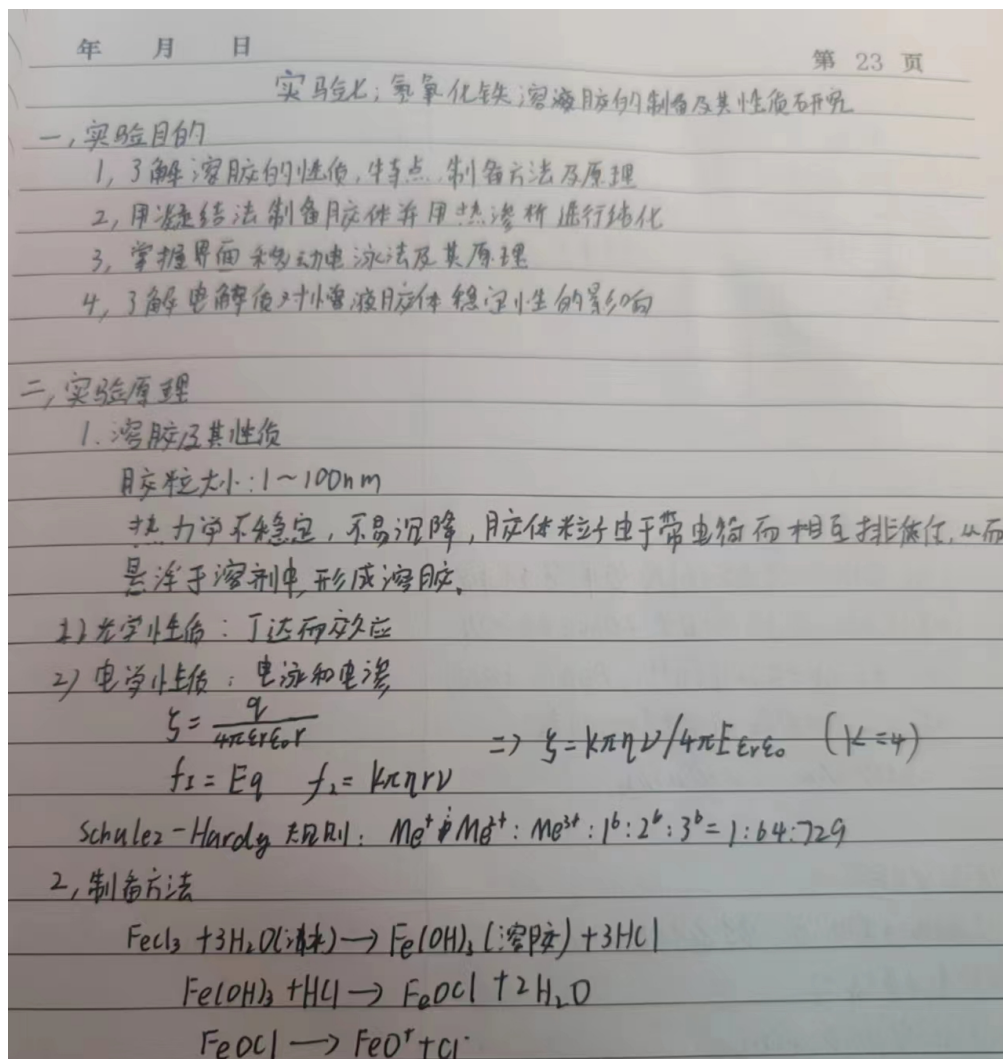 年 月 日
第 23 页
实验七: 氢氧化铁溶液胶的制备及其性质研究
一, 实验目的
1, 了解溶胶的性质, 特点, 制备方法及原理
2, 用凝结法制备胶体并用热渗析进行纯化
3, 掌握界面移动电泳法及其原理
4, 了解电解质对小溶液胶体稳定性的影响
二, 实验原理
1. 溶胶及其性质
胶粒大小: 1~100nm
热力学不稳定, 不易沉降, 胶体粒子由于带电荷而相互排斥, 从而
悬浮于溶剂中, 形成溶胶.
1) 光学性质: 丁达而效应
2) 电学性质: 电泳和电渗
ζ = q/4πεrε₀r => ζ = kπην/4πEεrε₀ (k=4)
f₁ = Eq f₂ = kπηrν
Schulez-Hardy 规则: Me⁺ Me²⁺: Me³⁺: 1⁶: 2⁶: 3⁶ = 1: 64: 729
2, 制备方法
FeCl₃ + 3H₂O(沸水) → Fe(OH)₃ (溶胶) + 3HCl
Fe(OH)₃ + HCl → FeOCl + 2H₂O
FeOCl → FeO⁺ + Cl⁻